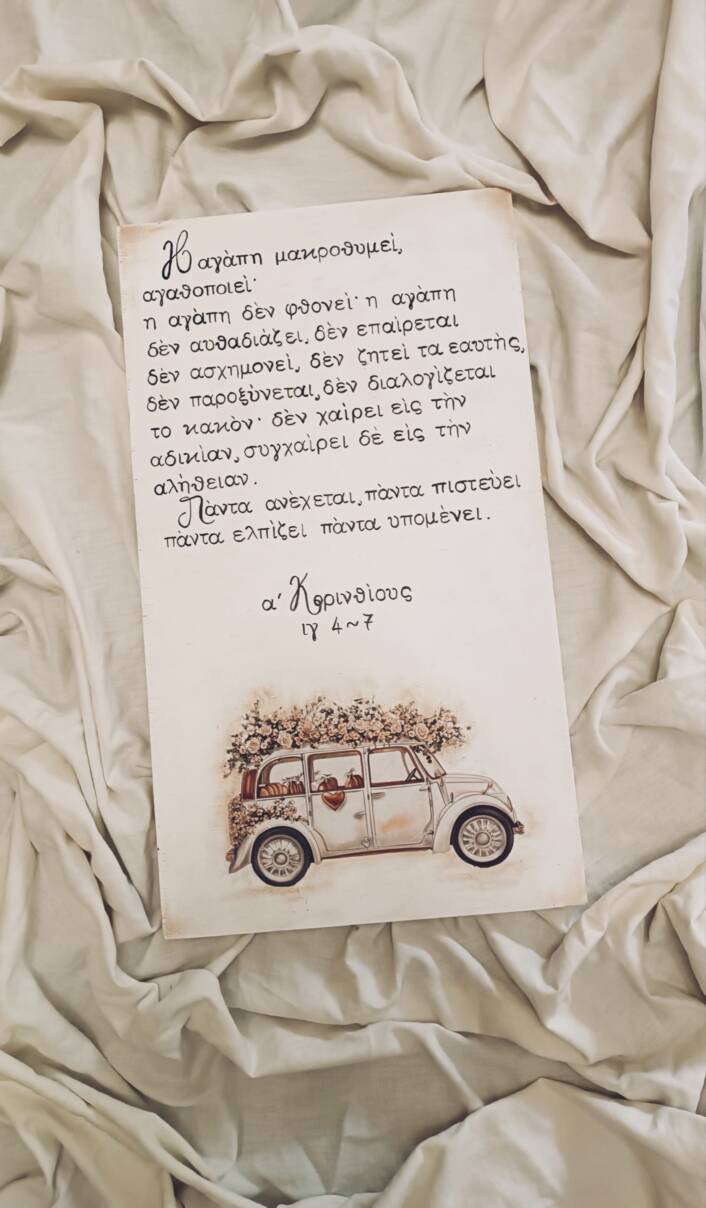 Η αγὰπη μακροθυμεὶ,
αγαθοποιεὶ·
η αγὰπη δὲν φθονεὶ· η αγὰπη
δὲν αυθαδιὰζει, δὲν επαὶρεται
δὲν ασχημονεὶ, δὲν ζητεὶ τα εαυτὴς,
δὲν παροξὺνεται, δὲν διαλογὶζεται
το κακὸν· δὲν χαὶρει εὶς τὴν
αδικὶαν, συγχαὶρει δὲ εὶς τὴν
αλὴθειαν.
Πὰντα ανὲχεται, πὰντα πιστεὺει
πὰντα ελπὶζει πὰντα υπομὲνει.
α' Κορινθὶους
ιγ 4~7